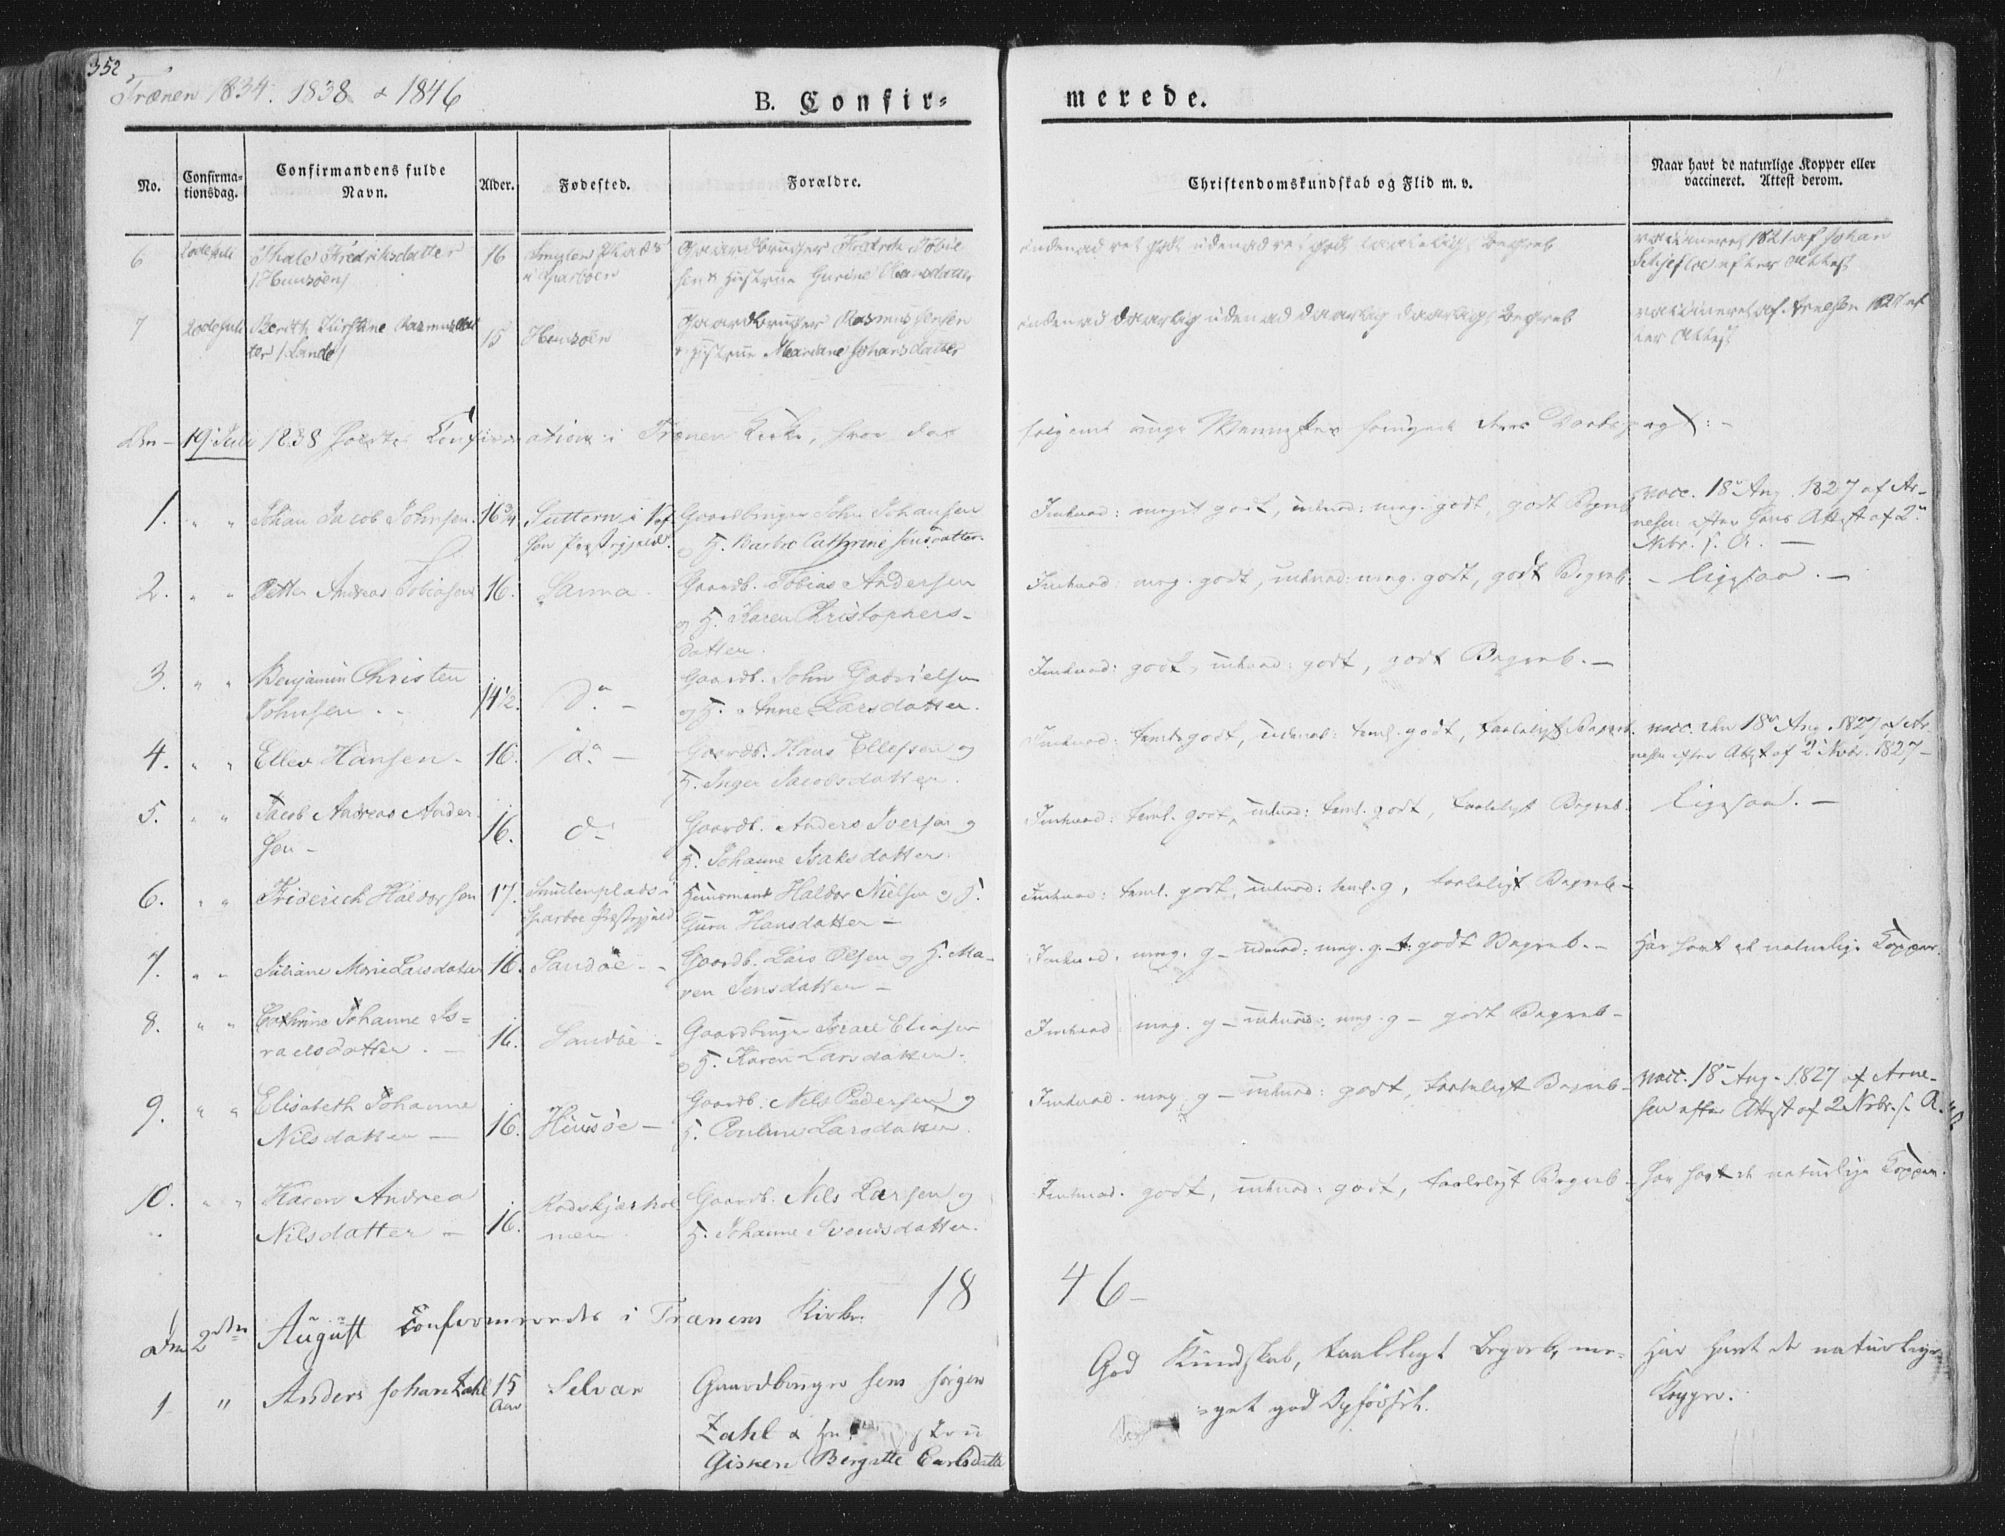 352
Trænen 1834. 1838 & 1846
B. Confir=
merede.
No.
Confirma-
tionsdag.
Confirmandens fulde
Navn.
Alder.
Fødested.
Forældre.
Christendomskundskab og Flid m. v.
Naar havt de naturlige Kopper eller
vaccineret. Attest derom.
6 20de Juli Thale Fredriksdatter 16 Gaardbruger Fredrik Tobie
/Huusøen/ sen & Hustrue Hansdatter
indenad ret godt udenad ret godt taaleligt Begreb
vaccineret 1821 af Johan
efter Attest
7 20de Juli Berith Kirstine Rasmusdat
ter /Sandø/ 15 Huusøen
Gaardbruger Rasmus Jensen
Hustrue Mariane Johansdatter
indenad daarlig udenad daarlig daarligt Begreb
vaccineret af Arnesen 1827 ef
ter Attest
Den 19 Juli 1838 holdtes Confirmation i Trænen Kirke, hvor da
følgende unge Mennesker fornyede deres Daabspagt: -
1. " " Johan Jacob Johnsen. 16 3/4 Suttern i Vef
sen Præstegjeld.
Gaardbruger John Johansen
og H. Barbro Cathrine Jensdatter.
Indvad: meget godt, udvad: meg. godt, godt Begreb
vacc. 18 Aug. 1827 af Ar-
nesen efter hans Attest af 2
Nvbr. s. A. —
2. " " Petter Andreas Tobiasen 16. Sanna -
Gaardb. Tobias Andersen
og H. Karen Christophers-
datter.
Indvad: meg. godt, udvad: meg. godt, godt Begreb.
- ligesaa. —
3. " " Benjamin Christen
Johnsen - - 14 1/2. do -
Gaardb. John Gabrielsen
og H. Anne Larsdatter.
Indvad: godt, udvad: godt, godt Begreb. —
4. " " Ellev Hansen - 16. do —
Gaardb. Hans Ellefsen og
H. Inger Jacobsdatter.
Indvad: teml. godt, udvad: teml. godt, taaleligt Begreb.
vacc. den 18 Aug. 1827 af Ar
nesen efter Attest af 2 Nvbr. 1827 -
5. " " Jacob Andreas Ander
sen - 16. do
Gaardb. Anders Iversen og
H. Johanne Isaksdatter.
Indvad: teml. godt, udvad: teml. godt, taaleligt Begreb.
ligesaa. —
6. " " Friderich Haldorsen 17.
Præstegjeld
Huusmand Haldor Nielsen og H.
Guru Hansdatter —
Indvad: teml. godt, udvad: teml. g, taaleligt Begreb -
7. " " Juliane Marie Larsdatter 16. Sandøe -
Gaardb. Lars Olsen og H. Ma-
ren Jensdatter —
Indvad. meg. g - udvad: meg. g. godt Begreb. -
Har havt de naturlige Kopper.
8. " " Cathrine Johanne Is=
raelsdatter. — 16. Sandøe -
Gaardbruger Israel Eliasen
og H. Karen Larsdatter.
Indvad: meg. g - udvad: meg. g - godt Begreb -
9. " " Elisabeth Johanne
Nilsdatter — 16. Huusøe —
Gaardb. Nils Pedersen og
H. Pauline Larsdatter.
Indvad. meg. g - udvad: godt, taaleligt Begreb -
vacc. 18 Aug. 1827 af Arne-
sen efter Attest af 2 Nvbr. s. A.
10. " " Karen Andrea
Nilsdatter — 16. Rødskjærhol
men.
Gaardb. Nils Larsen og
H. Johanne Svendsdatter.
Indvad. godt, udvad: godt, taaleligt Begreb -
har havt de naturlige Kopper.
18 46 -
Den 2den August confirmerede i Trænens Kirke.
1 " Anders Johan Zahl 15
Aar Selvær
Gaardbruger Jens Jørgen
Zahl &
Gisken Bergitte Carlsdatter
God Kundskab, taaleligt Begreb, me=
=get god Opførsel.
Har havt de naturlige
Kopper.